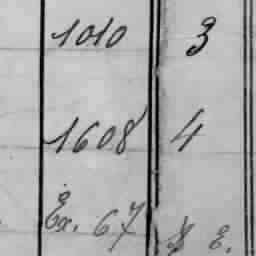 1010 3
1608 4
Ex. 67 E.